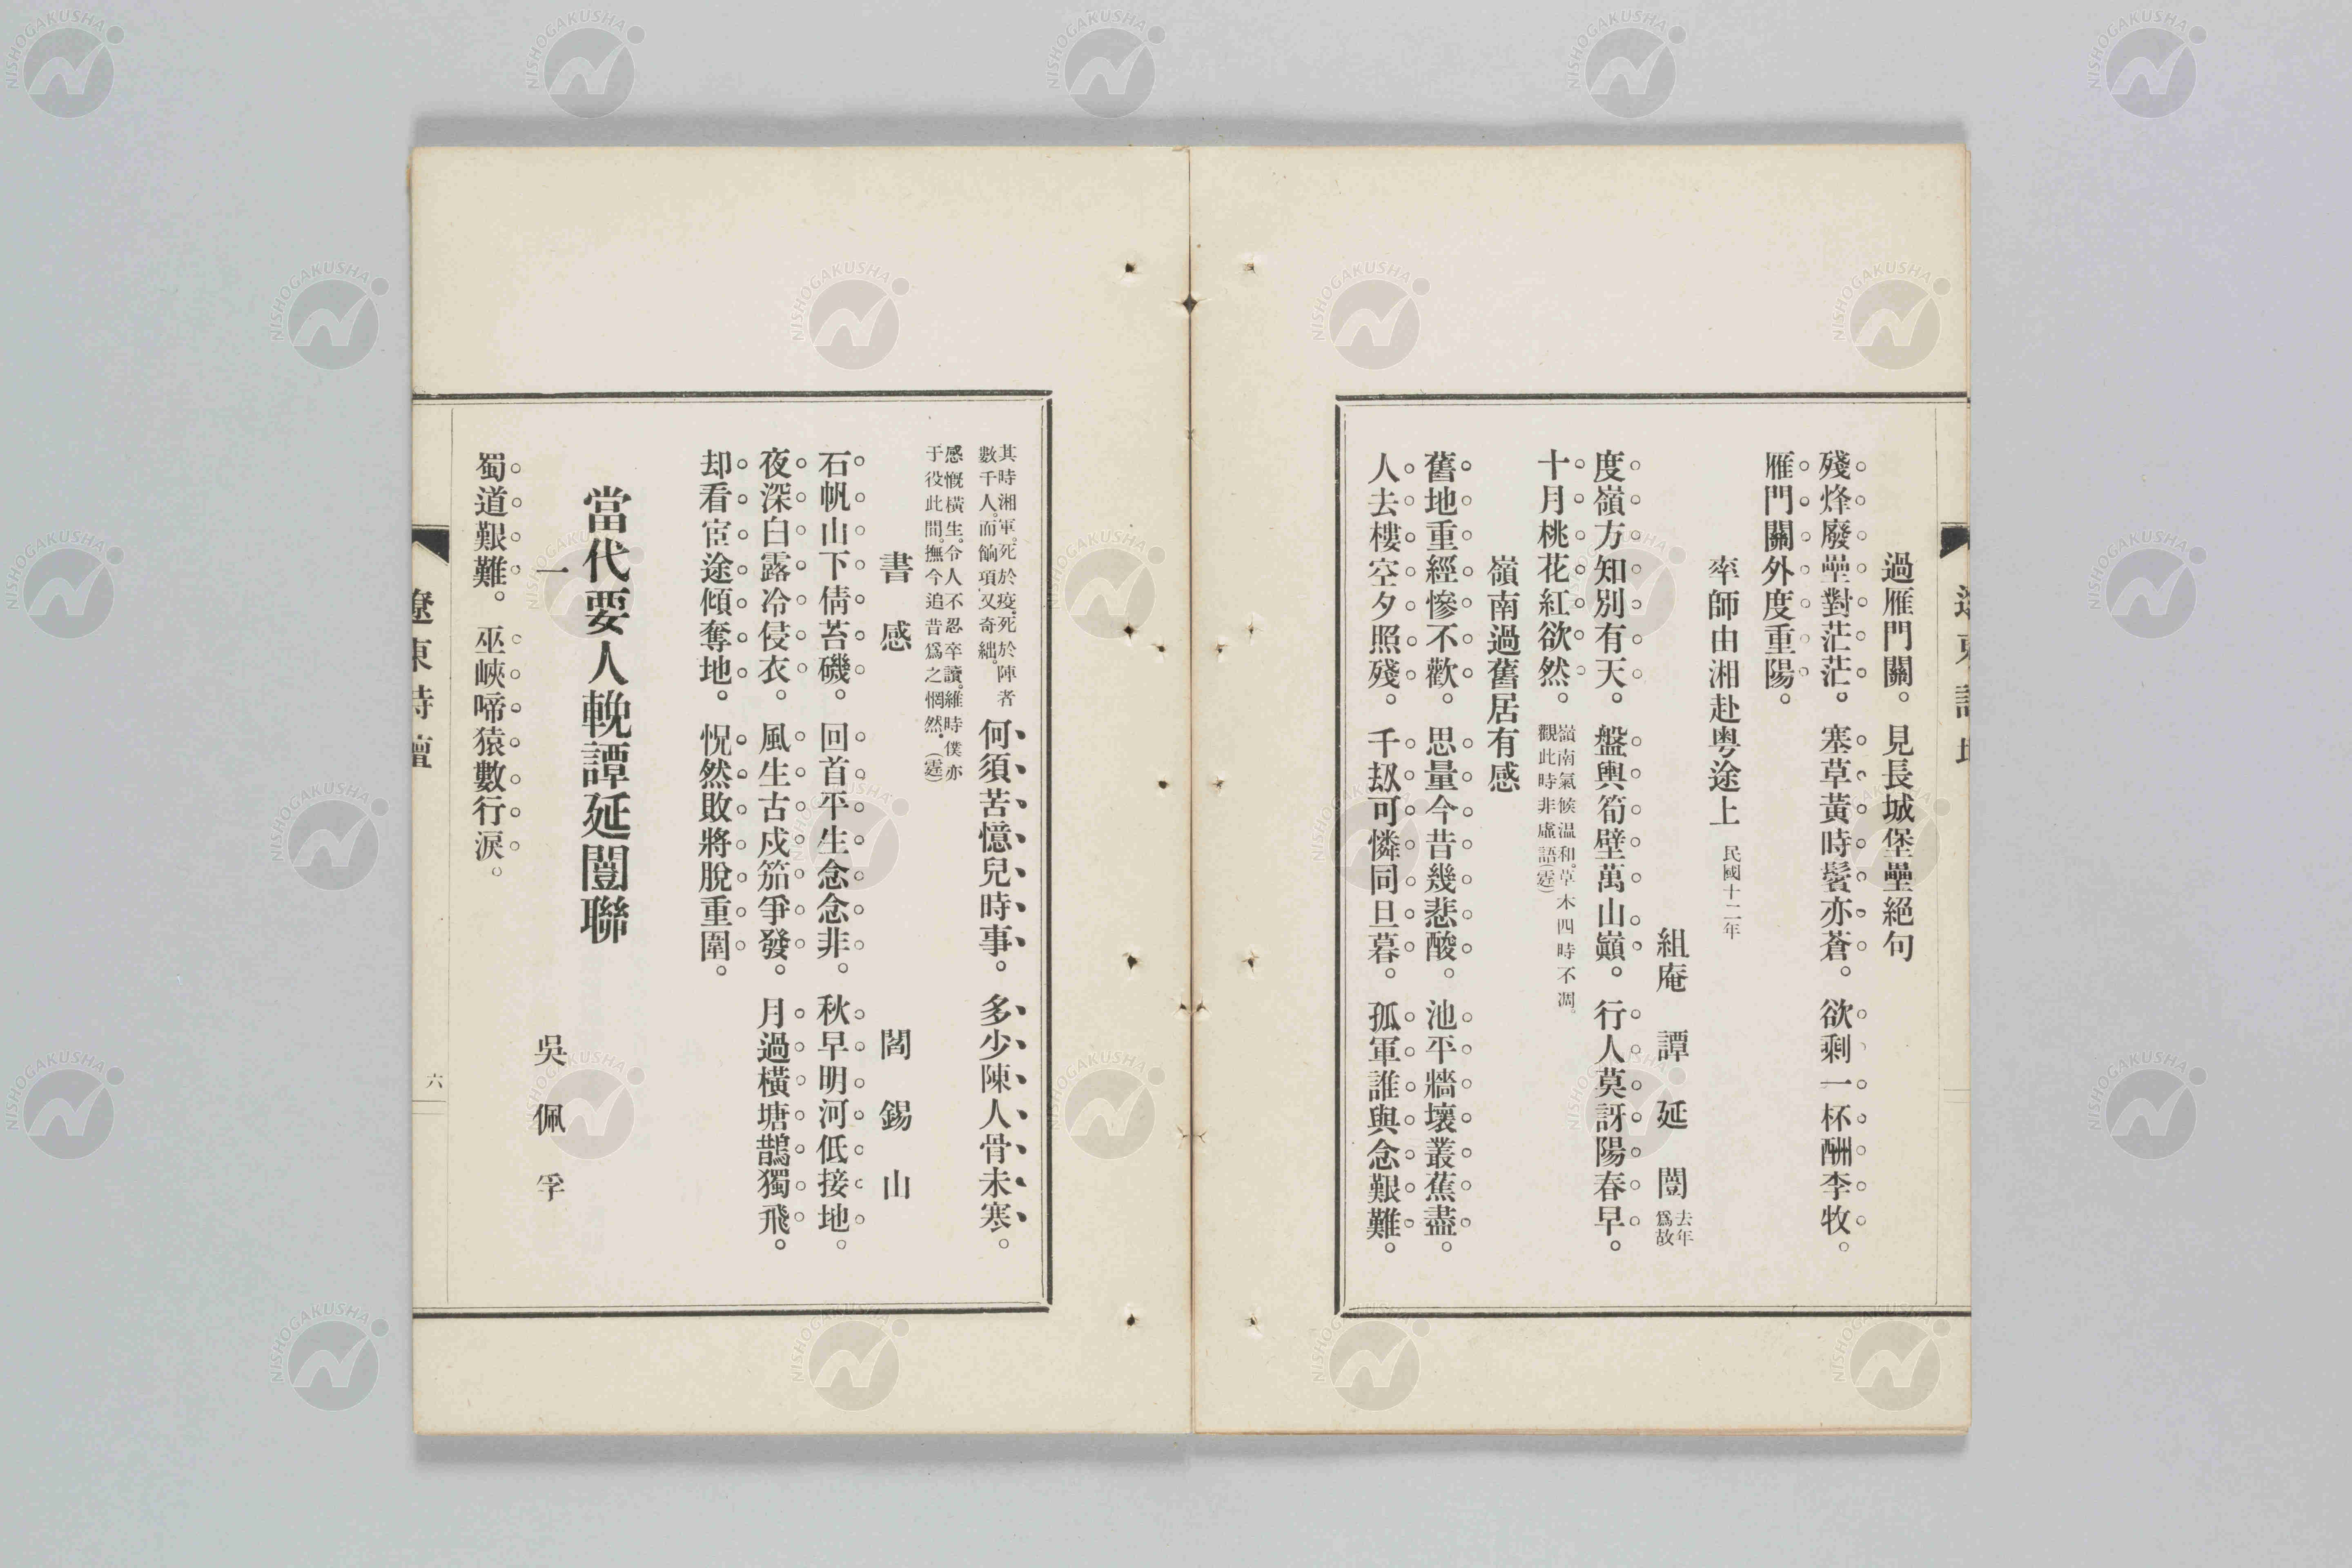 過雁門關。見長城堡壘絕句
殘烽廢壘對茫茫。塞草黃時鬢亦蒼。欲剩一杯酬李牧。
雁門關外度重陽。
率師由湘赴粤途上 民國十二年
組庵 譚延闓 去年爲故
度嶺方知別有天。盤輿筍壁萬山巓。行人莫訝陽春早。
十月桃花紅欲然。嶺南氣候温和。草木四時不凋。
觀此時非虛語(霆)
嶺南過舊居有感
舊地重經慘不歡。思量今昔幾悲酸。池平牆壞叢蕉盡。
人去樓空夕照殘。千刼可憐同旦暮。孤軍誰與念艱難。
其時湘軍。死於疫。死於陣者
數千人。而餉項又奇絀。何須苦憶兒時事。多少陳人骨未寒。
感慨橫生。令人不忍卒讀。維時僕亦
于役此間。撫今追昔爲之惘然。(霆)
書感 閻錫山
石帆山下倩苔磯。回首平生念念非。秋早明河低接地。
夜深白露冷侵衣。風生古戍笳爭發。月過橫塘鵲獨飛。
却看宦途傾奪地。怳然敗將脫重圍。
當代要人輓譚延闓聯
一 吳佩孚
蜀道艱難。巫峽啼猿數行淚。
遼東詩壇
六
NISHOGAKUSHA